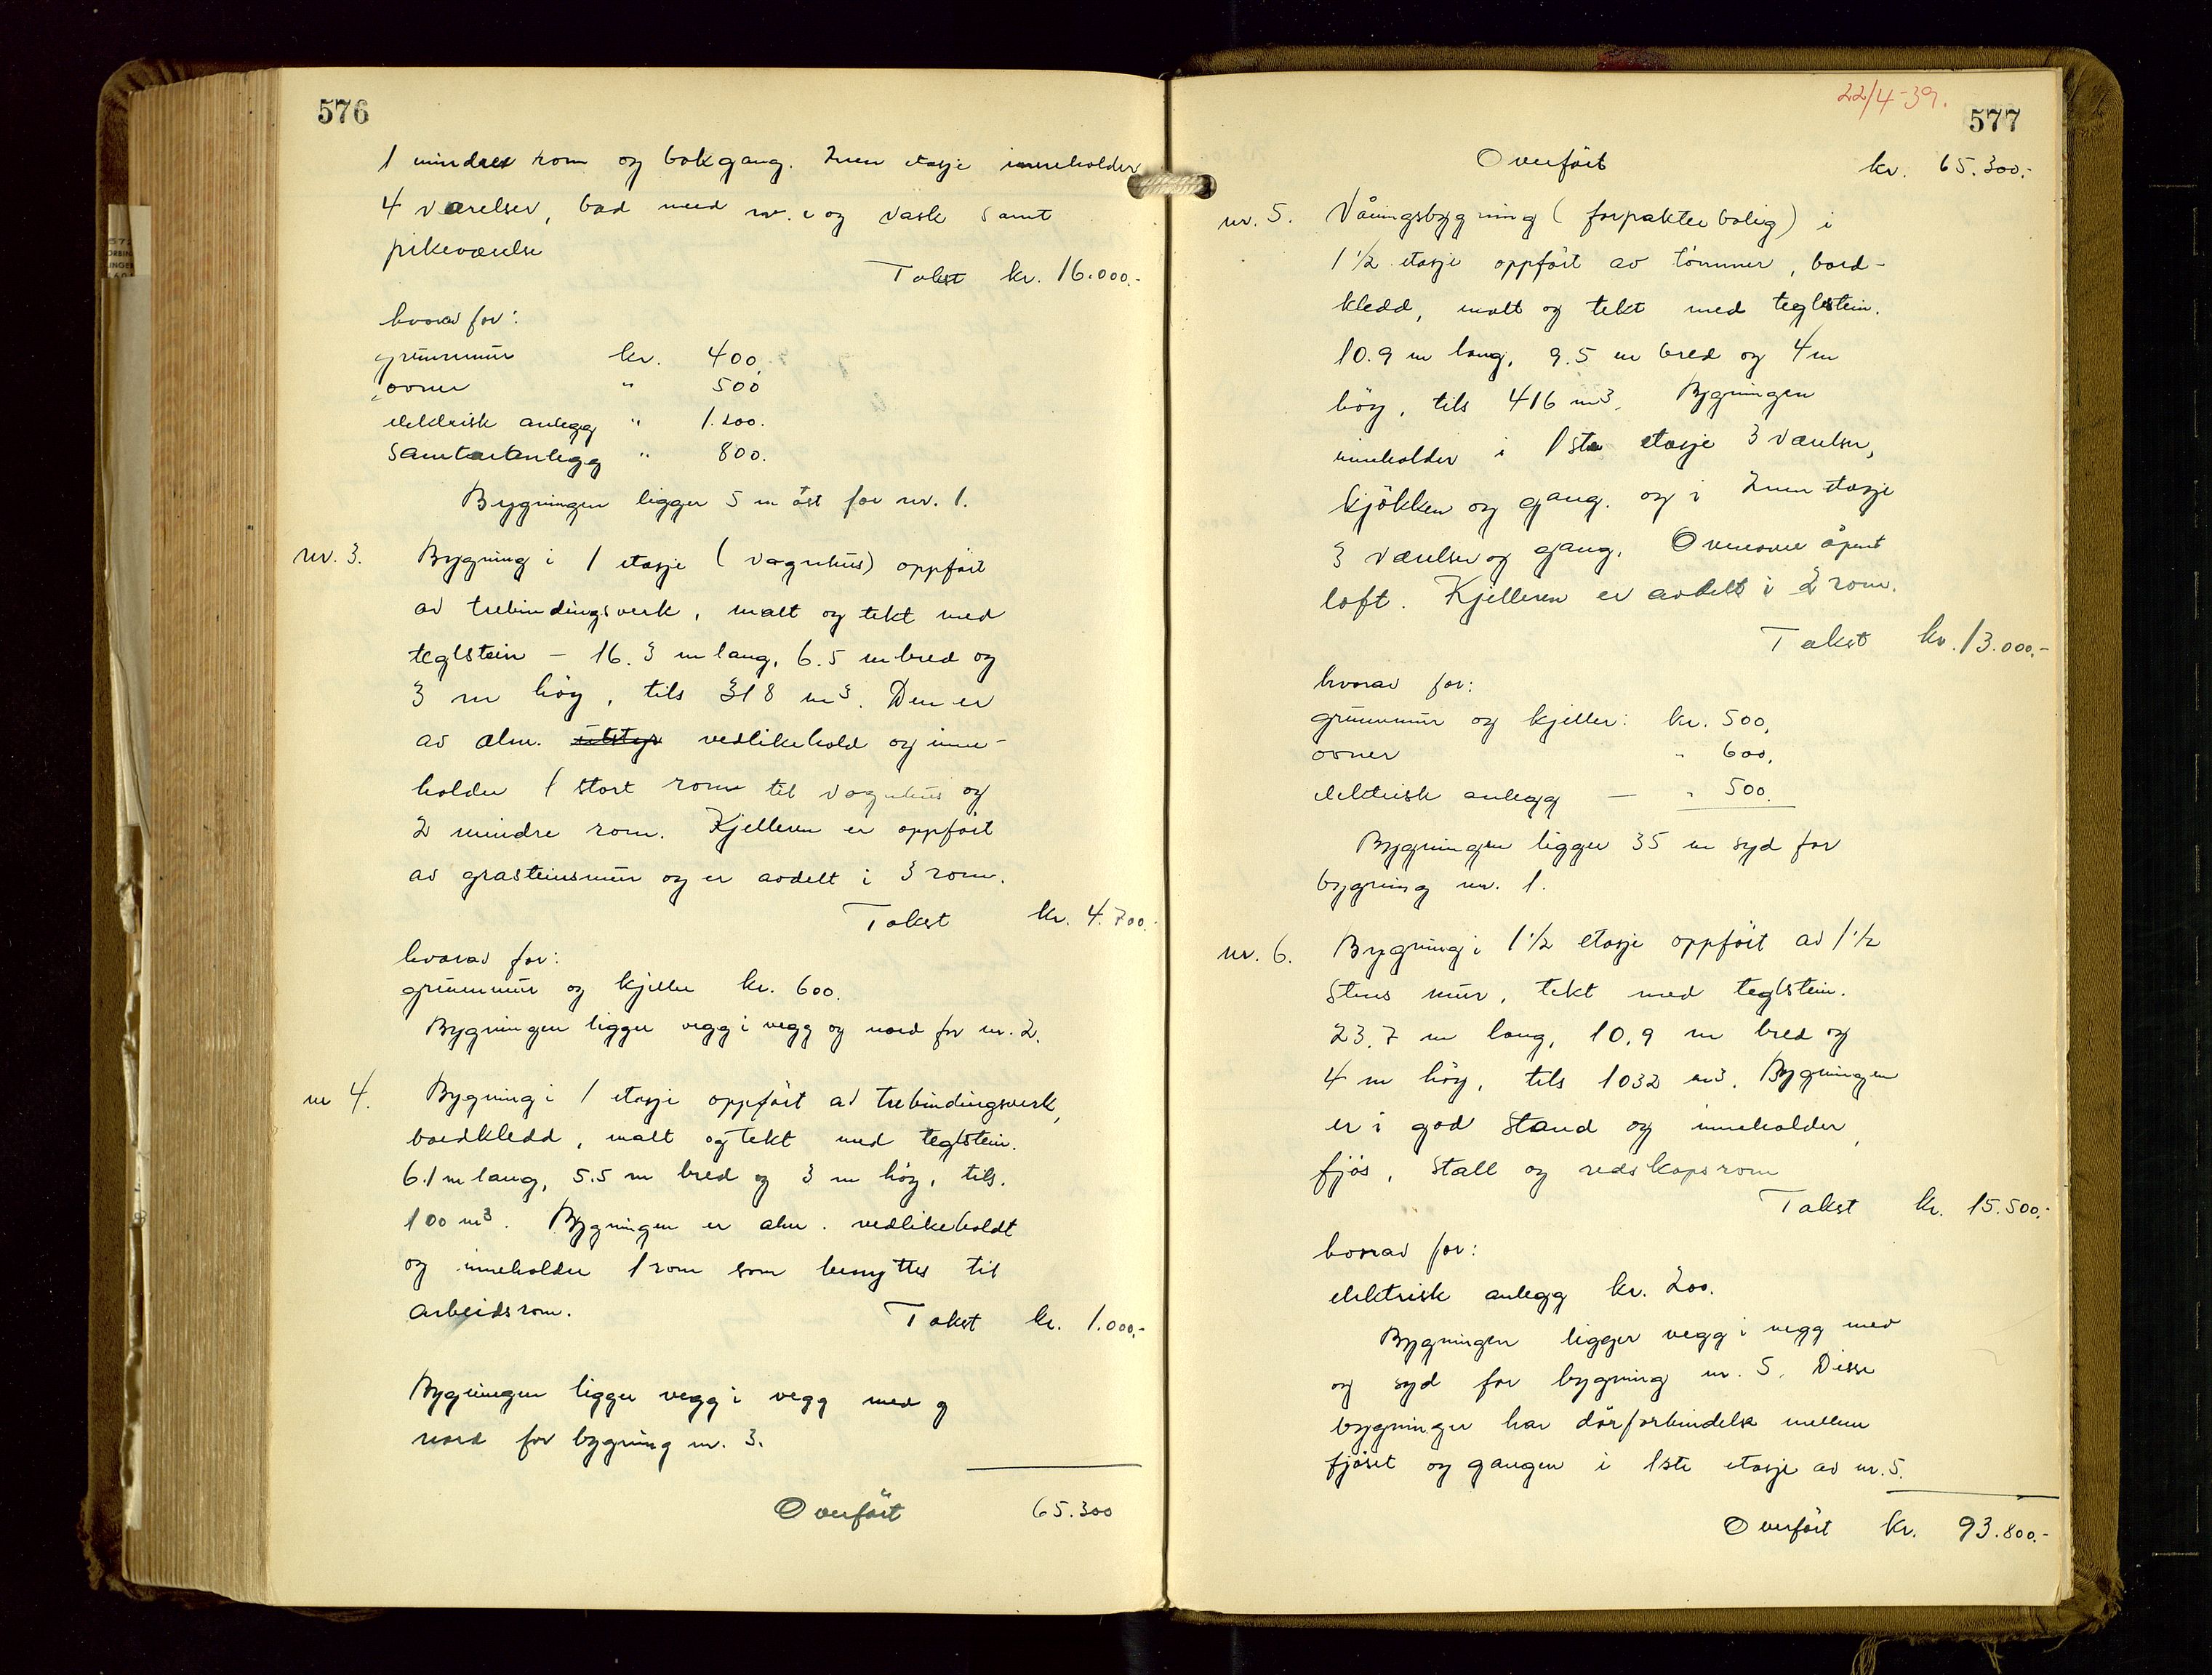 576
1 mindre rom og bakgang. 2nen etasje inneholder
4 værelser, bad med w.c og vask samt
pikeværelse
Takst kr. 16.000.-
hvorav for:
grunnmur kr. 400,
ovner " 500
elektrisk anlegg " 1.200.
Sanitæranlegg " 800.
Bygningen ligger 5 m øst for nr. 1.
nr. 3. Bygning i 1 etasje (vognhus) oppført
av trebindingsverk, malt og tekt med
teglstein - 16.3 m lang, 6.5 m bred og
3 m høy, tils 318 m³. Den er
av alm. utstyr vedlikehold og inne-
holder 1 stort rom til vognhus og
2 mindre rom. Kjelleren er oppført
av gråsteinsmur og er avdelt i 3 rom.
Takst kr. 4.700.-
hvorav for:
grunnmur og kjeller kr. 600.
Bygningen ligger vegg i vegg og nord for nr. 2.
nr 4. Bygning i 1 etasje oppført av trebindingsverk,
bordkledd, malt og tekt med teglstein.
6.1 m lang, 5.5 m bred og 3 m høy, tils.
100 m³. Bygningen er alm. vedlikeholdt
og inneholder 1 rom som benyttes til
arbeidsrom. Takst kr. 1.000.-
Bygningen ligger vegg i vegg med og
nord for bygning nr. 3.
Overført 65.300
22/4-39.
577
Overført kr. 65.300.-
nr. 5. Våningsbygning (forpakterbolig) i
1 1/2 etasje oppført av tømmer, bord-
kledd, malt og tekt med teglstein.
10.9 m lang, 9.5 m bred og 4 m
høy, tils 416 m³. Bygningen
inneholder i 1ste etasje 3 værelser,
kjøkken og gang. og i 2nen etasje
3 værelser og gang. Ovenover åpent
loft. Kjelleren er avdelt i 2 rom.
Takst kr. 13.000.-
hvorav for:
grunnmur og kjeller: kr. 500,
ovner " 600,
elektrisk anlegg — " 500.
Bygningen ligger 35 m syd for
bygning nr. 1.
nr. 6. Bygning i 1 1/2 etasje oppført av 1 1/2
stens mur, tekt med teglstein.
23.7 m lang, 10.9 m bred og
4 m høy, tils 1032 m³. Bygningen
er i god stand og inneholder,
fjøs, stall og redskapsrom
Takst kr. 15.500.-
hvorav for:
elektrisk anlegg kr. 200.
Bygningen ligger vegg i vegg med
og syd for bygning nr. 5. Disse
bygninger har dørforbindelse mellem
fjøset og gangen i 1ste etasje av nr. 5.
Overført kr. 93.800.-